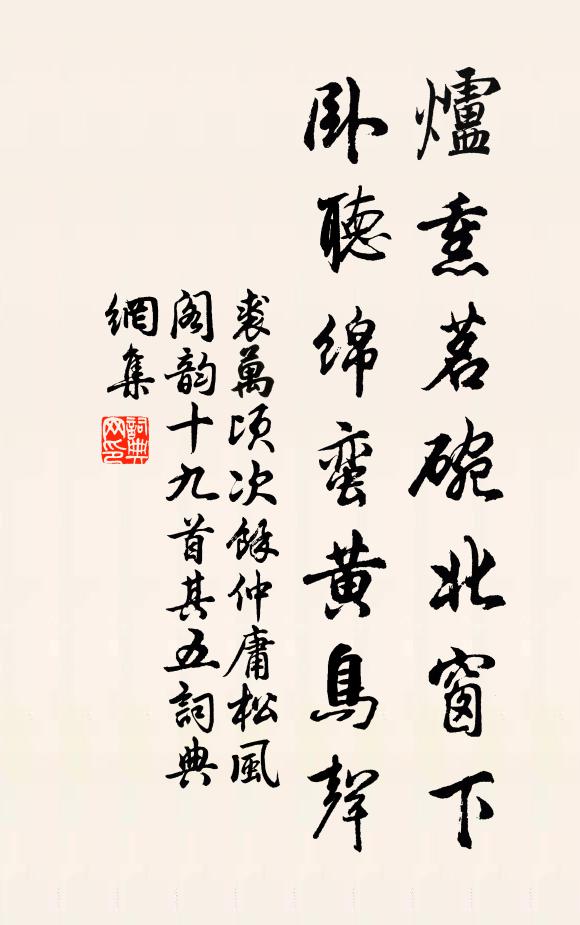 爐熏茗碗北窗下
卧聽綿蛮黃鳥聲
裘萬頃次餘仲庸松風
閣韵十九首其五詞典
網集
詞典
网印